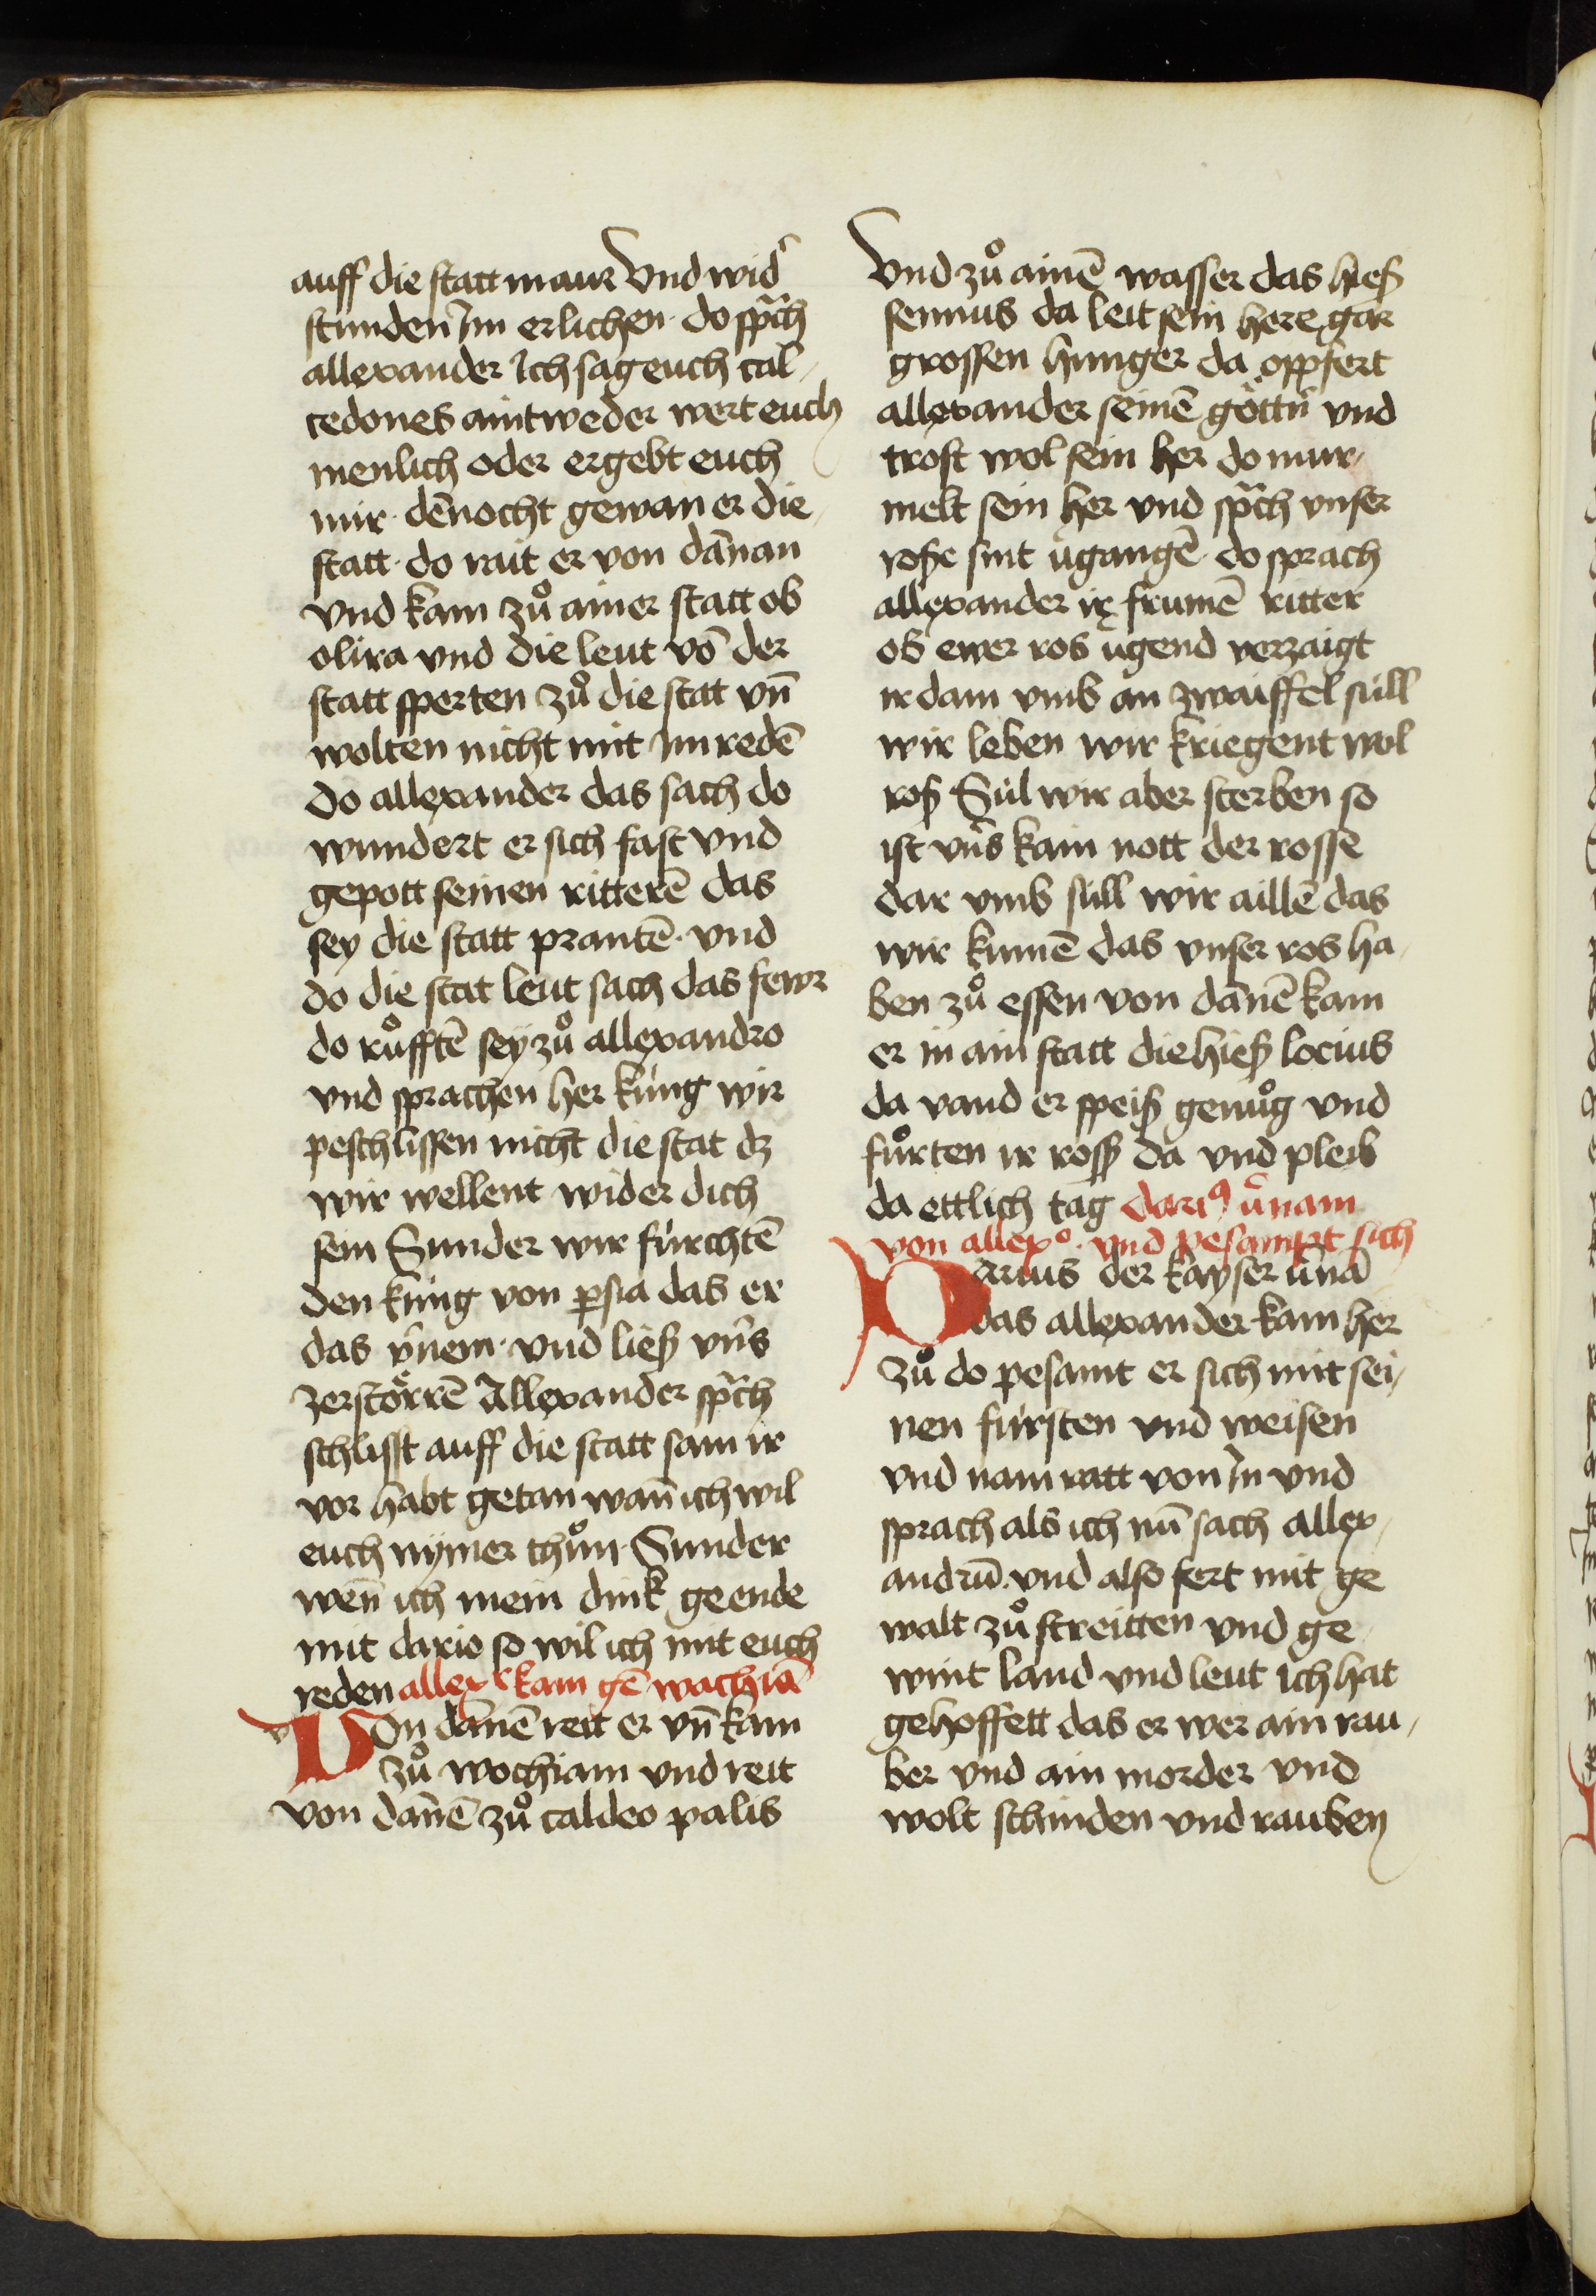 auff die statt maur Vnd wid᷑
stunden Im erlichen · do sp̃ch
allexander Ich sag euch cal-
cedones aintweder wert euch
menlich oder ergebt euch
mir · dēnocht gewan er die
statt · do rait er von dānan
vnd kam zů ainer statt ob
olira vnd die leut vō der
statt sperten zů die stat vn̄
wolten nicht mit Im redē
Do allexander das sach do
wundert er sich fast vnd
gepott seinen ritterē das
sey die statt prantē · vnd
do die stat leut sach das fewr
do růfftē sey zů allexandro
vnd sprachen her kúng wir
peschlissen nicht die stat dz
wir wellent wider dich
sein Sunder wir fúrchtē
den kúng von ꝑsia das er
das v᷑nem · vnd ließ vn̄s
zerstörrē Allexander sp̃ch
schlisst auff die statt sam ir
vor habt getan wan̄ ich wil
euch nymer thůn · Sunder
wen̄ ich mein dink geende
mit dario so wil ich mit euch
reden allex᷑ kam gē wachiā
VOn dānē reit er vn̄ kam
zů wochiam vnd reit
von dānē zů caldeo palis
Vnd zů ainē wasser das hieß
sennus da leit sein here gar
grossen hunger da oppfert
allexander seinē göttn̄ vnd
trost wol sein her do mur-
melt sein her vnd sp̃ch vnser
roße sint v᷑gangē · do sprach
allexander ir frumē ritter
ob ewer ros v᷑gend verzaigt
ir dam vmb an zwaiffel súll
wir leben wir kriegent wol
roß Súl wir aber sterben so
ist vn̄s kain nott der rosse
dar vmb súll wir aillē das
wir kumē das vnser ros ha-
ben zů essen von dānē kam
er in ain statt die hieß locius
da vand er speiß genůg vnd
fůrten ir ross da vnd pleib
da ettlich tag dariꝰ v᷑nam
von allexº · vnd pesampt sich
DArius der kayser v᷑nā
das allexander kam her
zů do pesamt er sich mit sei-
nen fúrsten vnd weisen
vnd nam ratt von In vnd
sprach als ich nū sach allex-
andrū · vnd also fert mit ge
walt zů streitten vnd ge-
wint land vnd leut ich hat
gehoffett das er wer ain rau-
ber vnd ain morder vnd
wolt schinden vnd rauben